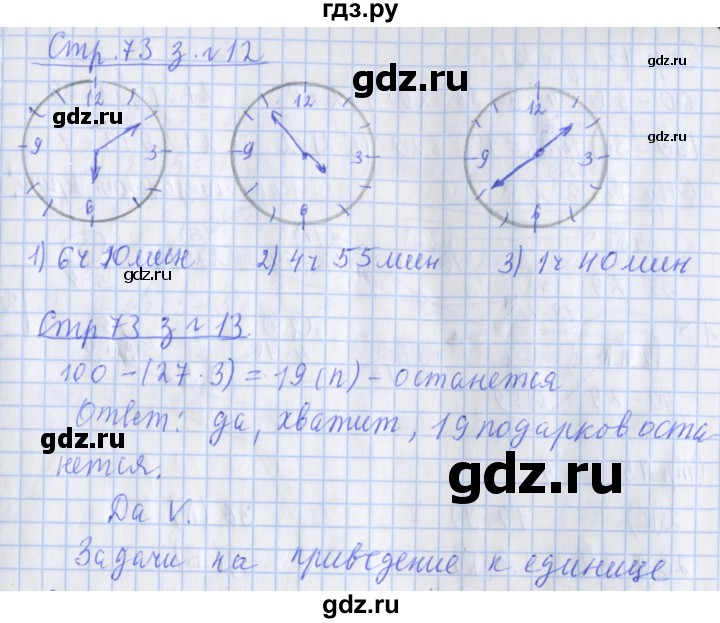 гдз.ру
Стр. 73 з. №12
12 9 3 6
12 9 3 6
12 9 3 6
1) 6ч 10мин 2) 4ч 55мин 3) 1ч 40мин
Стр 73 з №13
100 - (27 · 3) = 19 (п) - останется
Ответ: да, хватит, 19 подарков оста-
нется.
Да V.
Задачи на приведение к единице
gdz.ru
gdz.ru
gdz.ru
gdz.ru
gdz.ru
gdz.ru
gdz.ru
gdz.ru
gdz.ru
gdz.ru